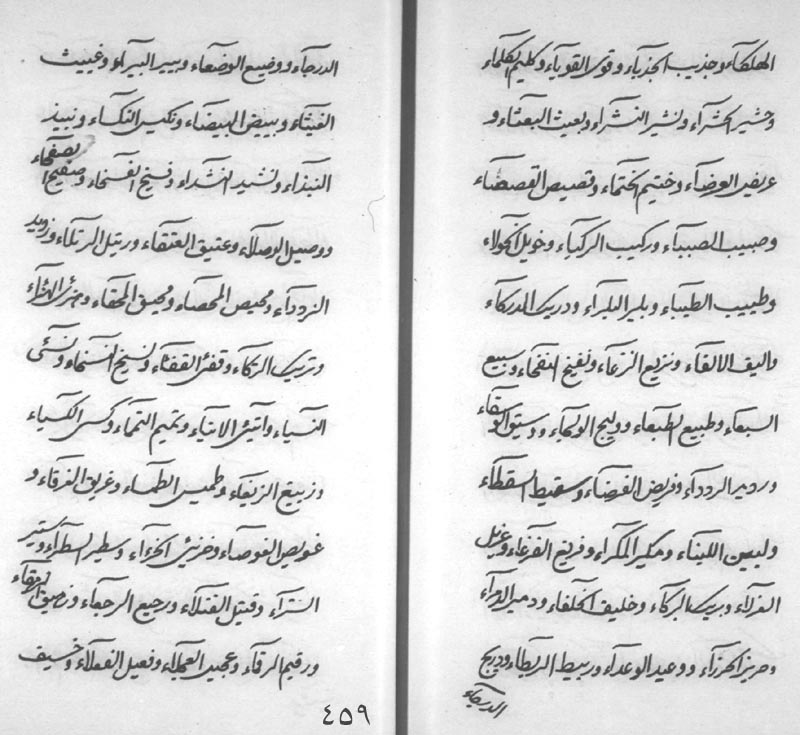 الهلكاء وجذيب الجذباء وقوى القوياء وكليم الكلماء
وحشير الحشراء ونشير النشراء وبعيث البعثاء و
عريض العرضاء وختيم الختماء وقصيص القصصاء
وصبيب الصبباء وركيب الركباء وخويل الخولاء
وطبيب الطبباء وبلير البلراء ودريك الدركاء
واليف الالفاء ونزيع النزعاء ونفيخ النفخاء وسبيع
السبعاء وطبيع الطبعاء ووليج الولجاء ووسيق الوسقاء
وردير الردداء وفريض الفرضاء وسقيط السقطاء
ولبين اللبناء ومكير المكراء وفريغ الفرغاء وغزيل
الغزلاء وبريك البركاء وخليف الخلفاء ودمير الدمراء
وحريز الحرزاء ووعيد الوعداء وربيط الربطاء ودريج
الدرجاء
الدرجاء ووضيع الوضعاء وبيير البيراء وغييث
الغيثاء وبييض البيضاء ونكيس النكساء ونبيذ
النبذاء ونشيد النشداء وفسيح الفسحاء وصفيح الصفحاء
ووصيل الوصلاء وعتيق العتقاء ورتيل الرتلاء وزديد
الزدداء ومحيص المحصاء ومحيق المحقاء وهنئ الهنئاء
وتريك التركاء وقفئ القفئاء ونسيخ النسخاء ونسئ
النسياء واتيئ الاتياء وتميم التماء وكسى الكسياء
وزبيغ الزبغاء وطميس الطمساء وغريق الغرقاء و
غويص الغوصاء وخزئى الخزءاء وسطير السطراء وستير
الستراء وقتيل القتلاء ورجيع الرجعاء وزهيق الزهقاء
ورقيم الرقماء وعجيل العجلاء وفعيل الفعلاء وخسيف
٤٥٩